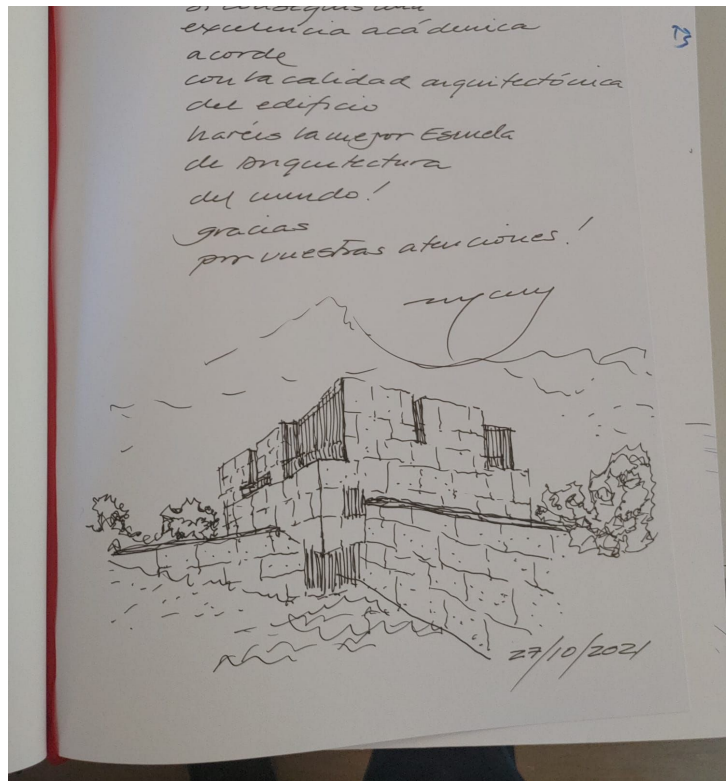 si conseguís una
excelencia académica
acorde
con la calidad arquitectónica
del edificio
haréis la mejor Escuela
de Arquitectura
del mundo!
gracias
por vuestras atenciones!
27/10/2021